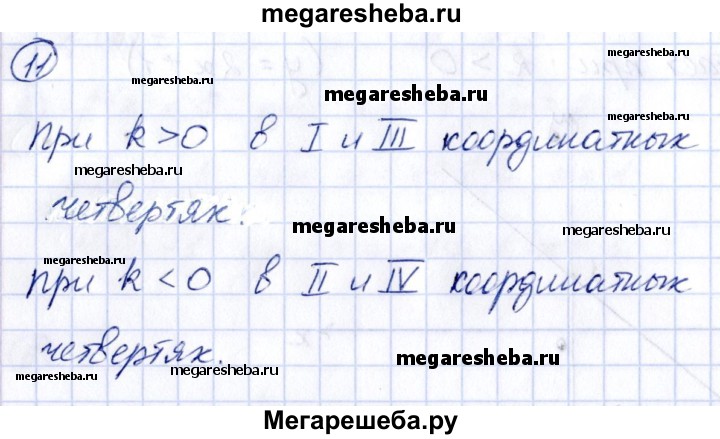 megaresheba.ru
11
megaresheba.ru
megaresheba.ru
megaresheba.ru
megaresheba.ru
при k>0 в I и III координатных
megaresheba.ru
четвертях.
megaresheba.ru
megaresheba.ru
megaresheba.ru
megaresheba.ru
при k<0 в II и IV координатных
четвертях.
megaresheba.ru
megaresheba.ru
megaresheba.ru
megaresheba.ru
Мегарешеба.ру